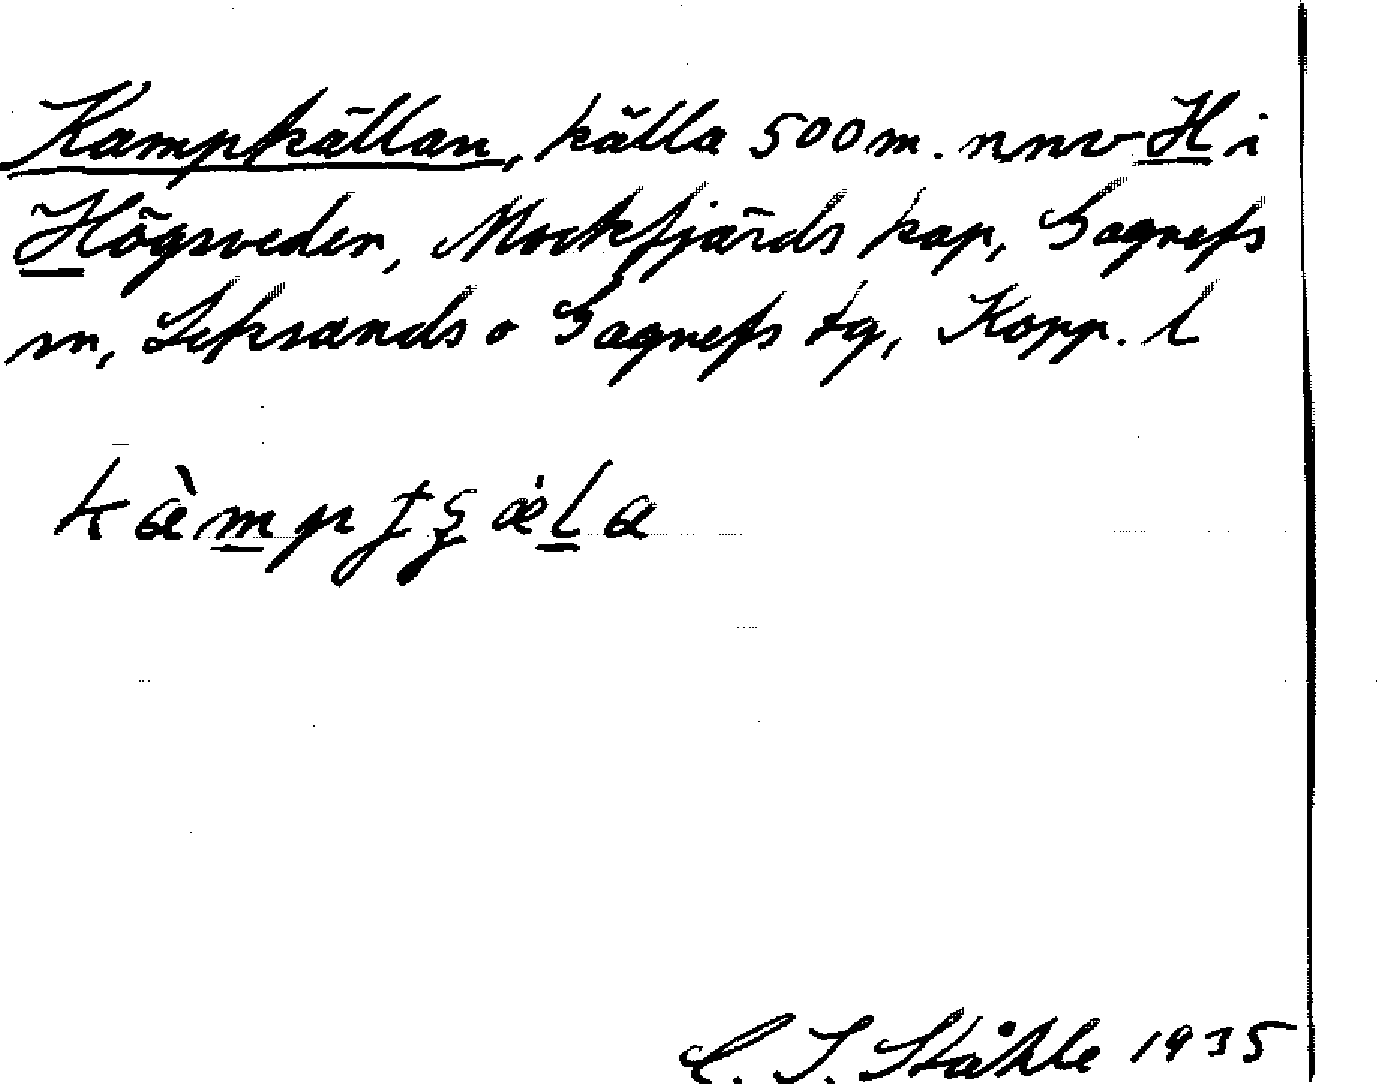 Kampkällan, källa 500 m. nnv H i
Högsveden, Mockfjärds kap, Gagnefs
sn, Leksands o Gagnefs tg, Kopp. l
C. I. Ståhle 1935